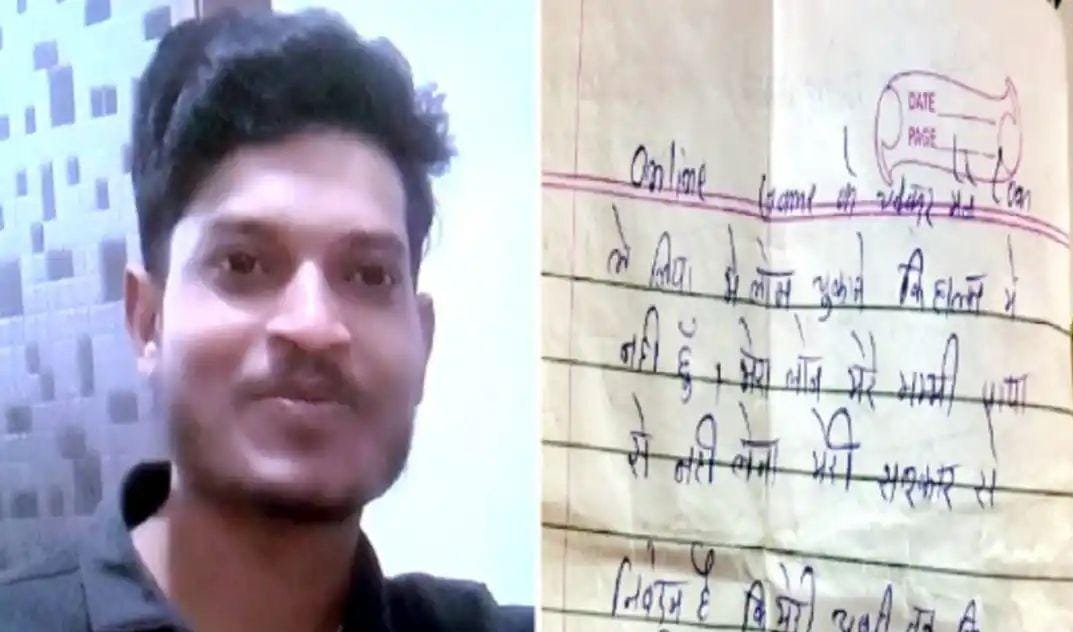 DATE
PAGE
Online Game के चक्कर में Loan
ले लिया मे लोन चुकाने कि हालत मे
नही हुँ, मेरा लोन मेरे मम्मी पापा
से नही लेना मेरी सरकार से
निवेदन है कि मेरी